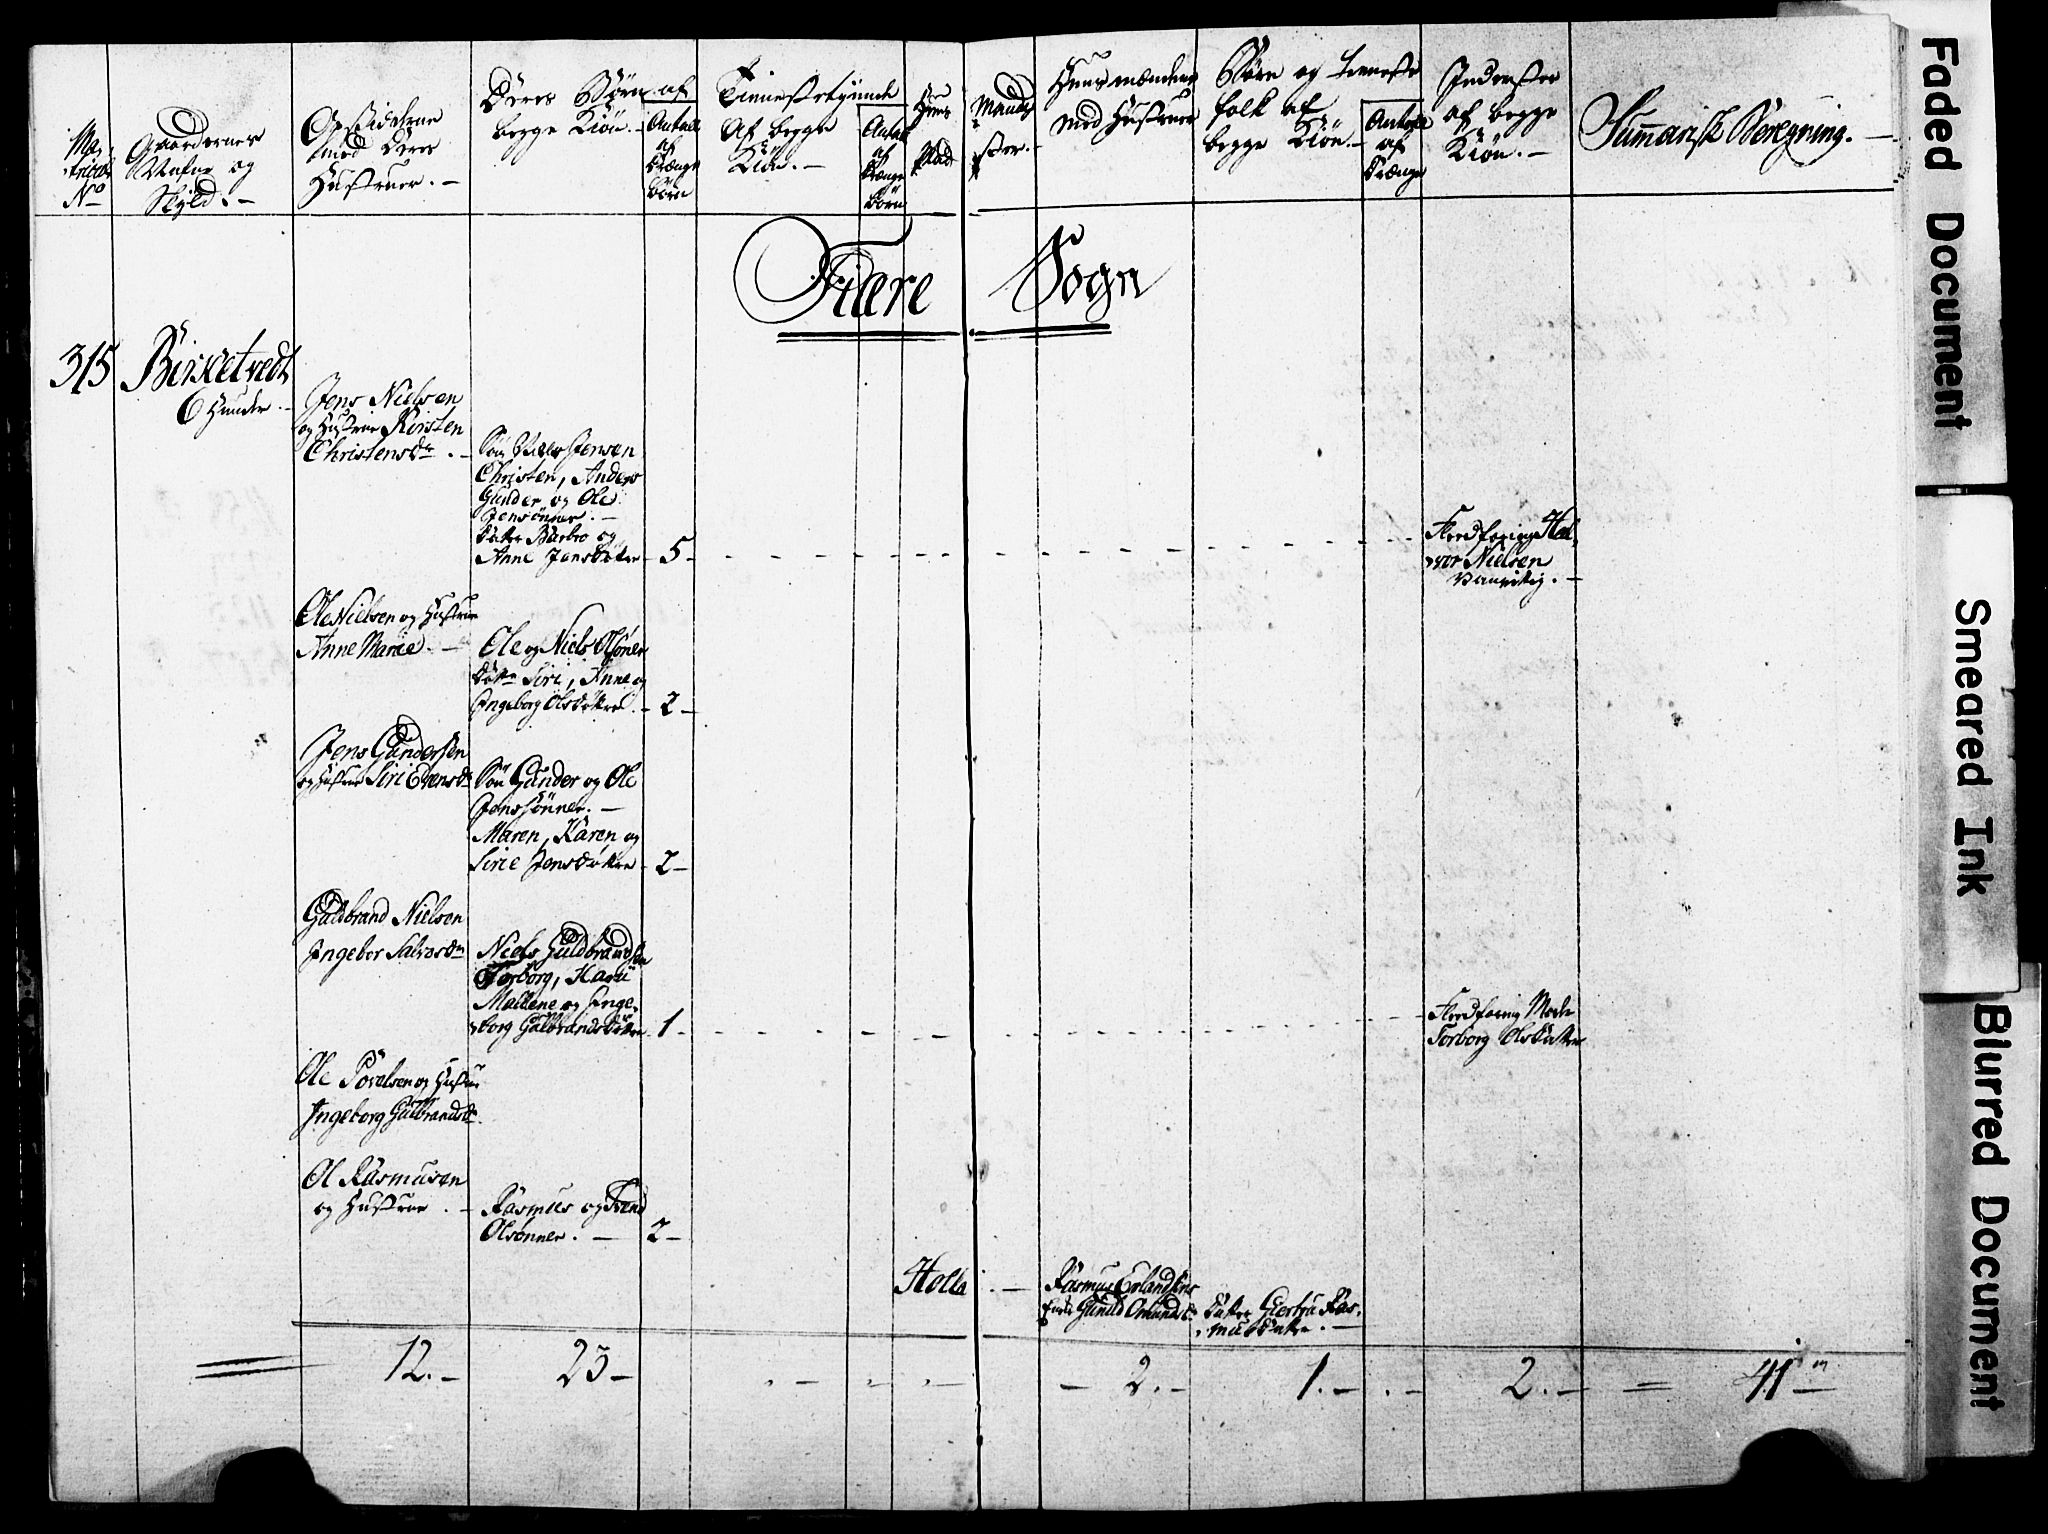 Ma-
tricul
No
Gaardernes
Nafne og
Skyld. -
Opsidderne
med Deres
Hustruer. -
Deres Børn af
begge Kiøn. -
Antall
af
Drænge
Børn
Tienestetyende
af begge
Kiøn. -
Antal
af
Drænge
Børn
Huus
Plad
Mands
ser. -
Huusmændene
med Hustruer
Børn og tieneste
folk af
begge Kiøn. -
Antall
af
Drænge
Inderster
af begge
Kiøn. -
Summarisk Beregning. -
Fiære Sogn
315 Birketvedt
6 Huuder. -
Jens Nielsen
og Hustrue Kirsten
Christensdr. -
Søn Niels Jensen
Christen, Anders
Gunder og Ole
Jensønner. -
Døtre Barbro og
Anne Jensdøtre - 5 -
Flordforing Hal-
vor Nielsen
vanvitig. -
Ole Nielsen og Hustrue
Anne Marie. -
Ole og Niels Olsøner
Døtre Siri, Anne og
Ingeborg Olsdøtre. - 2 -
Jens Gundersen
og Hustrue Siri Evensdr
Søn Gunder og Ole
Jenssønner. -
Maren, Karen og
Sirie Jensdøtre - 2 -
Guldbrand Nielsen
Ingebor Salvesdr
Niels Guldbrandsen
Torborg, Kari
Mallene og Inge-
borg Gulbrandsdøtre - 1 -
Flordforing Mode
Torborg Olsdatter
Ole Povelsen og Hustrue
Ingeborg Gulbrandsdr.
Ol Rasmusen
og Hustrue. -
Rasmus og Tend
Olsønner. - 2 -
Holla. -
Rasmus Erlandsens
Enke Gunild Omundsdr
Datter Giertru Ras-
musdatter. -
12. - 23 - - 2. - 1. - 2. - = 41 -
Faded Document
Smeared Ink
Blurred Document